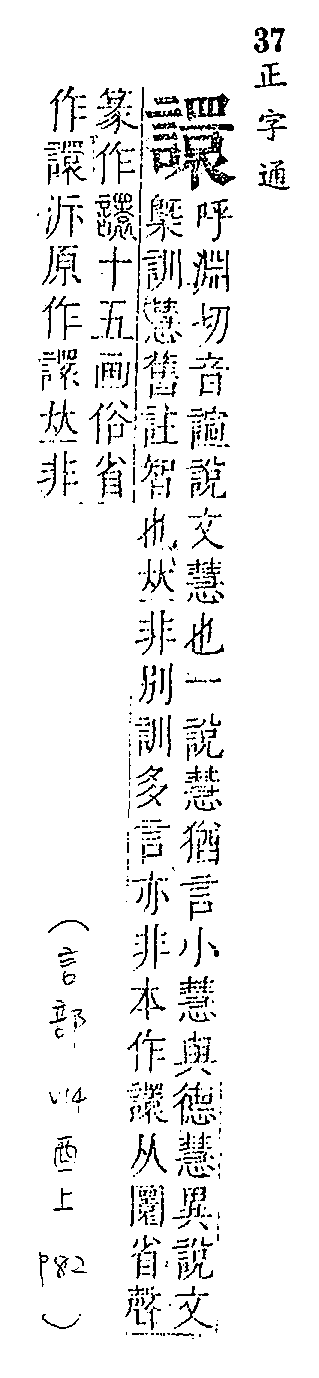 37 正字通
譞 呼淵切音諠說文慧也一說慧猶言小慧與德慧異說文
槩訓慧舊註智也𠀤非別訓多言亦非本作譞从圜省聲
篆作譞十五画俗省
作譞泝原作譞𠀤非
（言部 v14 酉上 p82）